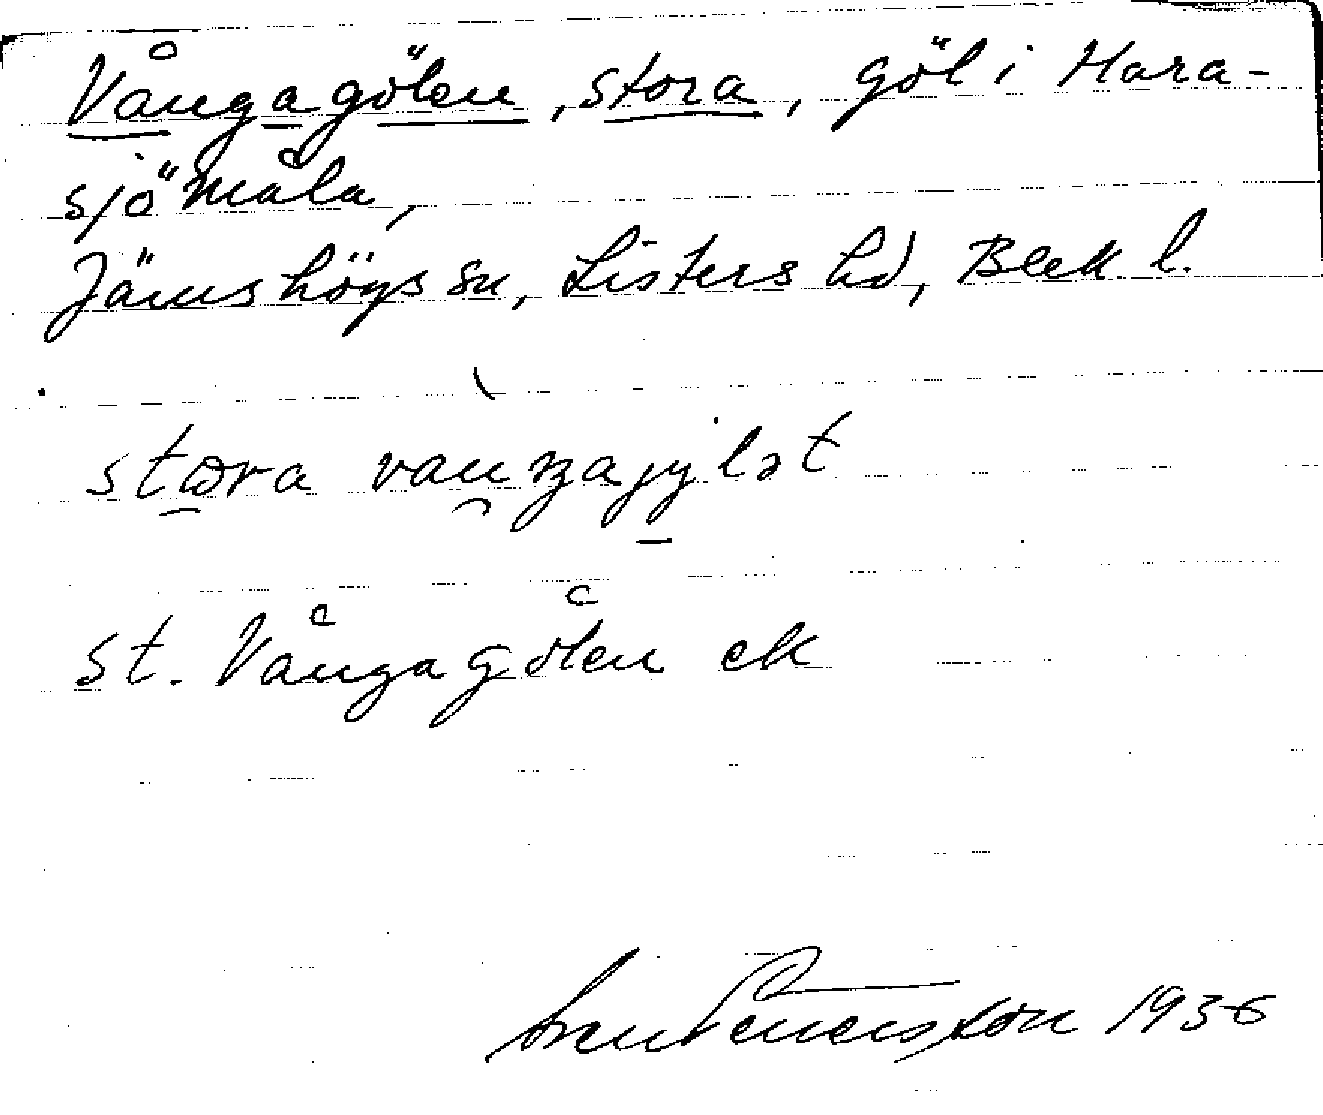 Vångagölen, stora, göl i Hara-
sjömåla,
Jämshögs sn, Listers hd, Blek l.
st. Vångagölen ek
1936